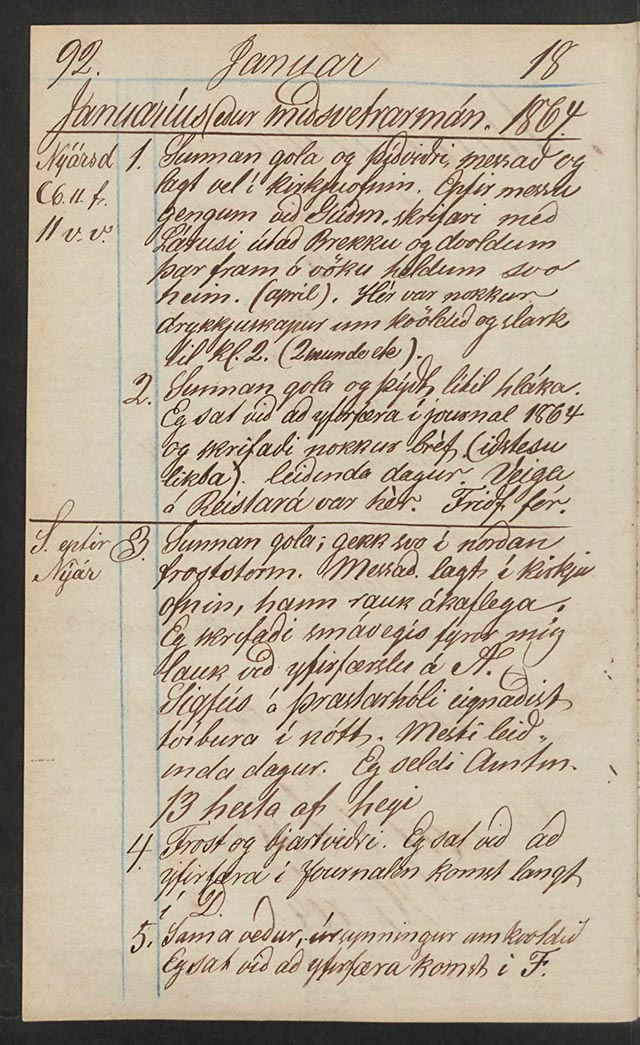 92. Januar 18
Januaríus eður miðsvetrarmán. 1864.
Nýársd 1. Sunnan gola og þíðviðri, messað og
C6. 11 f. lagt vel í kirkjuofnin. Eptir messu
11 v. v. gengum við Guðm. skrifari með
Lárusi útað Brekku og dvöldum
þar fram á vöku héldum svo
heim. (april). Hér var nokkur
drykkjuskapur um kvöldið og slark
til kl. 2. (2
2. Sunnan gola og þýdt, lítil hláka.
Eg sat við að yfirfæra í journal 1864
og skrifaði nokkur bréf.
leiðinda dagur. Veiga
á Reistará var hér. Friðf fór.
S. eptir 3. Sunnan gola; gekk svo í norðan
Nýár froststorm. Messað. lagt í kirkju
ofnin, hann rauk ákaflega.
Eg skrifaði smávegis fyrir mig
lauk við yfirfærslu á A.
Sigfús á Þrastarhóli eignaðist
tvíbura í nótt. Mesti leið-
inda dagur. Eg seldi Amtm.
13 hesta af heyi
4. Frost og bjartviðri. Eg sat við að
yfirfæra í Journalen komst langt
í D.
5. Sama veður, úrsynningur um kvöldið
Eg sat við að yfirfæra komst í F.